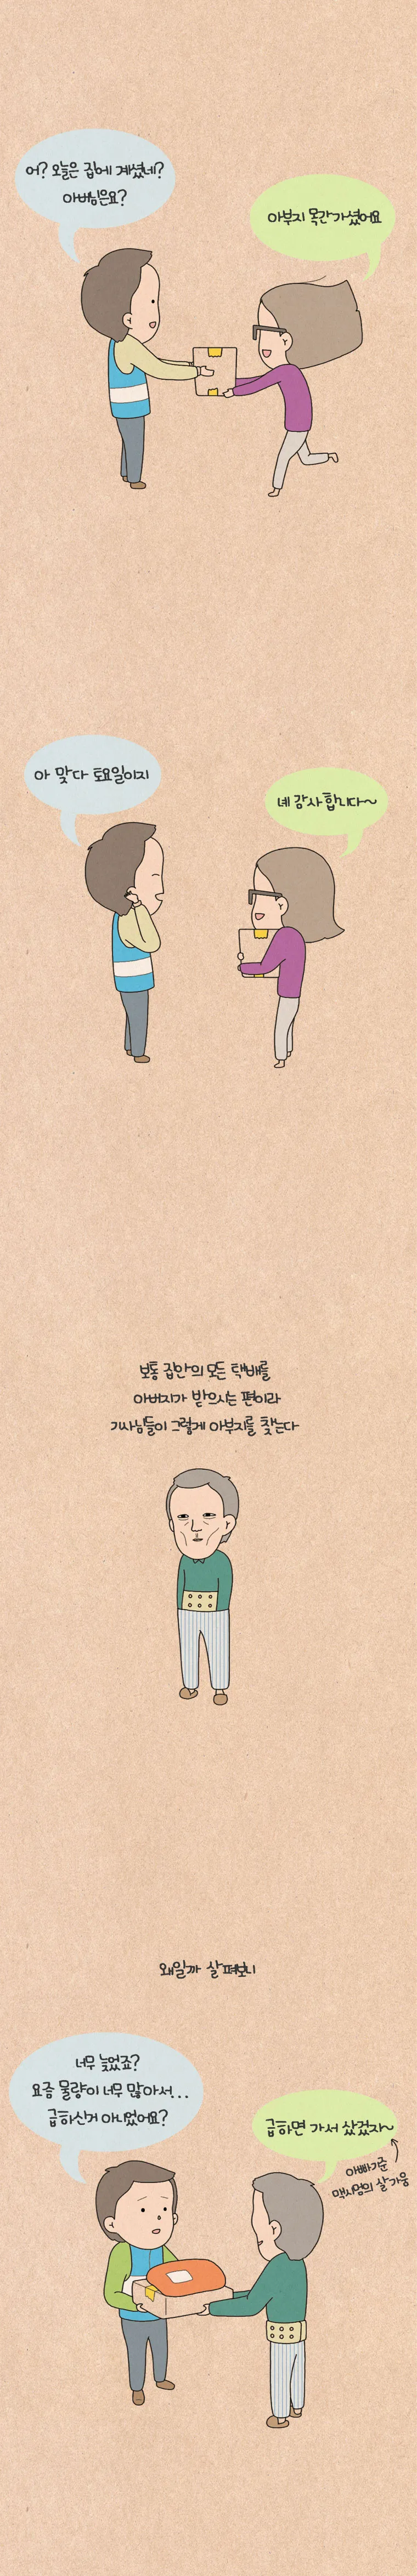 어? 오늘은 집에 계셨네?
아버님은요?
아부지 목간가셨어요
아 맞다 토요일이지
네 감사합니다~
보통 집안의 모든 택배를
아버지가 받으시는 편이라
기사님들이 그렇게 아부지를 찾는다
왜일까 살펴보니
너무 늦었죠?
요즘 물량이 너무 많아서...
급하신거 아니었어요?
급하면 가서 샀겄지~
아빠기준
맥시멈의 살가움